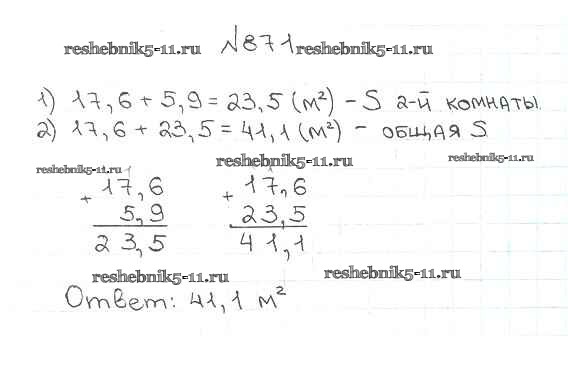 №871
reshebnik5-11.ru reshebnik5-11.ru
1) 17,6 + 5,9 = 23,5 (м²) - S 2-й комнаты.
2) 17,6 + 23,5 = 41,1 (м²) - общая S
reshebnik5-11.ru reshebnik5-11.ru
reshebnik5-11.ru
1 1
+ 17,6 + 17,6
5,9 23,5
23,5 41,1
reshebnik5-11.ru reshebnik5-11.ru
Ответ: 41,1 м²